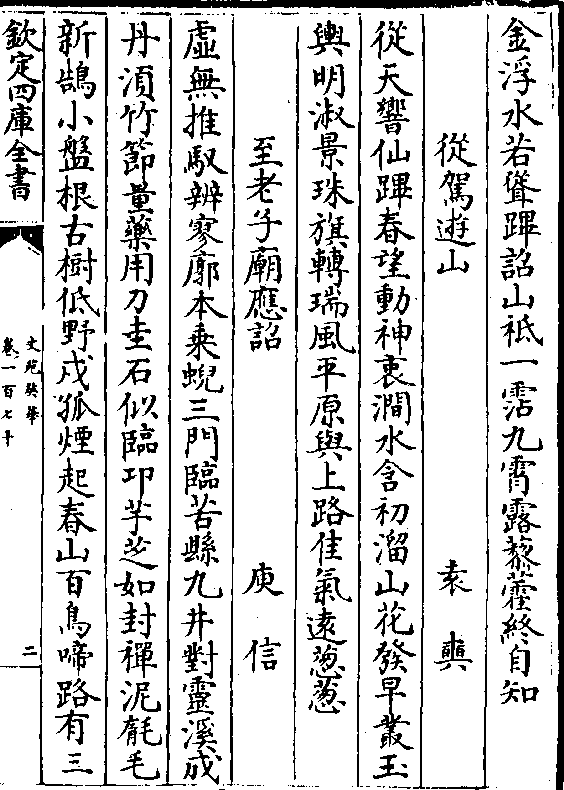 金浮水若聳蹕詔山祗一霑九霄露藜藿終自知
從駕遊山 袁奭
從天響仙蹕春望動神衷澗水含初溜山花發早叢玉
輿明淑景珠旗轉瑞風平原與上路佳氣遠葱葱
至老子廟應詔 庾信
虛無推馭辨寥廓本乗蜺三門臨苦縣九井對靈溪成
丹湏竹節量藥用刀圭石似臨卭芋芝如封禪泥毻毛
新鵠小盤根古樹低野戍孤煙起春山百鳥啼路有三
欽定四庫全書
文苑英華
卷一百七十
二